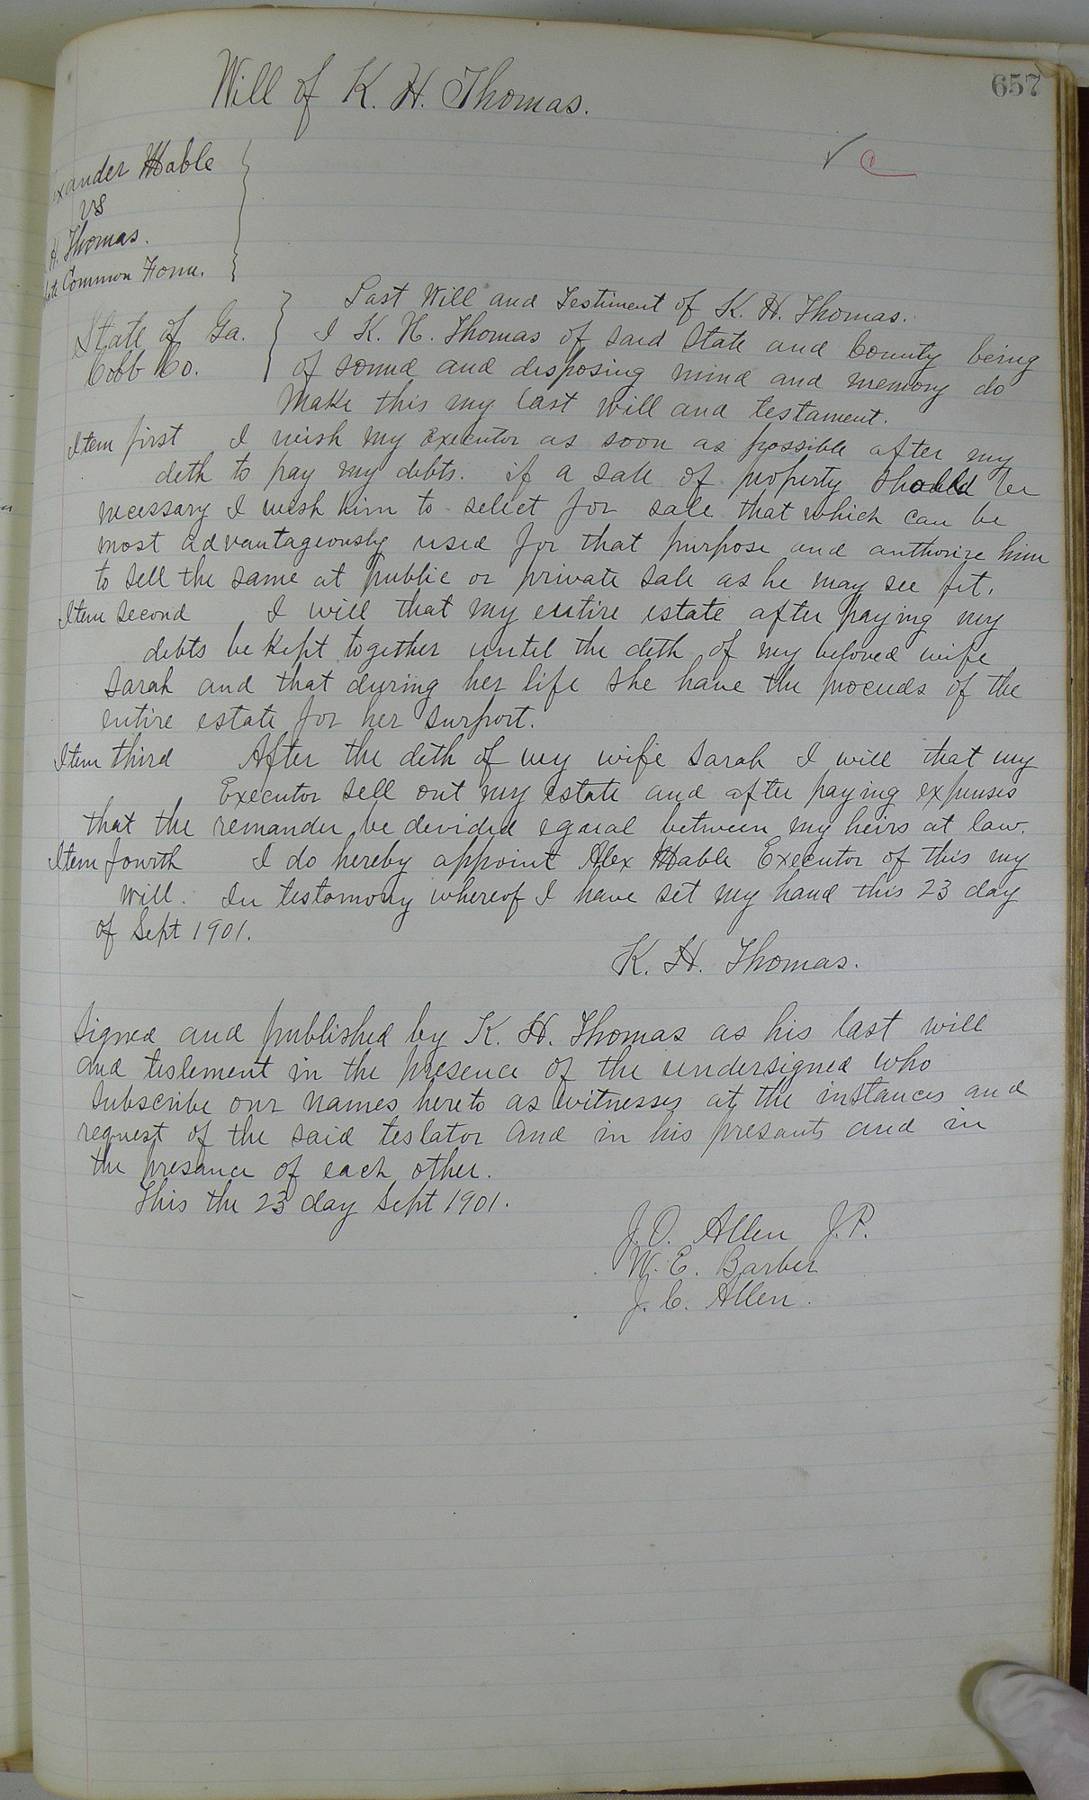 657
Will of K. H. Thomas.
xander Mable
vs
H. Thomas.
Common Form.
Last Will and Testiment of K. H. Thomas.
State of Ga.
Cobb Co.
I K. H. Thomas of said State and County being
of sound and disposing mind and memory do
Make this my last will and testament.
Item first I wish my executor as soon as possible after my
deth to pay my debts. if a sale of property should be
necessary I wish him to select for sale that which can be
most advantageously used for that purpose and authorize him
to sell the same at public or private sale as he may see fit.
Item second I will that my entire estate after paying my
debts be kept together until the deth of my beloved wife
Sarah and that dyring her life she have the proceeds of the
entire estate for her surport.
Item third After the deth of my wife Sarah I will that my
Executor sell out my estate and after paying expenses
that the remander be devided egaual between my heirs at law.
Item fourth I do hereby appoint Alex Mable Executor of this my
will. In testamony whereof I have set my hand this 23 day
of Sept 1901.
K. H. Thomas.
Signed and published by K. H. Thomas as his last will
and testement in the presence of the undersigned who
subscribe our names hereto as witnesses at the instances and
request of the said testator and in his presants and in
the presance of each other.
This the 23 day Sept 1901.
J. O. Allen J.P.
W. E. Barber
J. C. Allen.